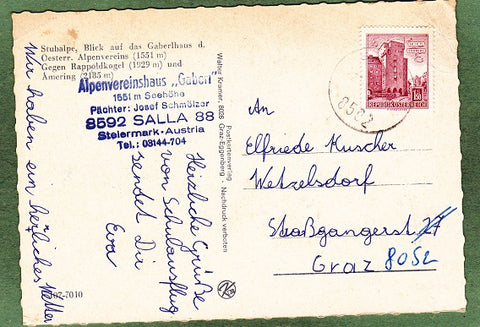 Stubalpe, Blick auf das Gaberlhaus d.
Oesterr. Alpenvereins (1551 m)
Gegen Rappoldkogel (1929 m) und
Amering (2185 m)
Alpenvereinshaus „Gaberl"
1551 m Seehöhe
Pächter: Josef Schmölzer
8592 SALLA 88
Steiermark-Austria
Tel.: 03144-704
Herzliche Grüße
von Schulausflug
sendet Dir
Eva
Wir haben ein herzliches Wetter
-7010
Walter Kramer, 8020 Graz-Eggenberg
Postkartenverlag
Nachdruck verboten
REPUBLIK ÖSTERREICH
An
Elfriede Kuscher
Wetzelsdorf
Straßgangerst
Graz 8052